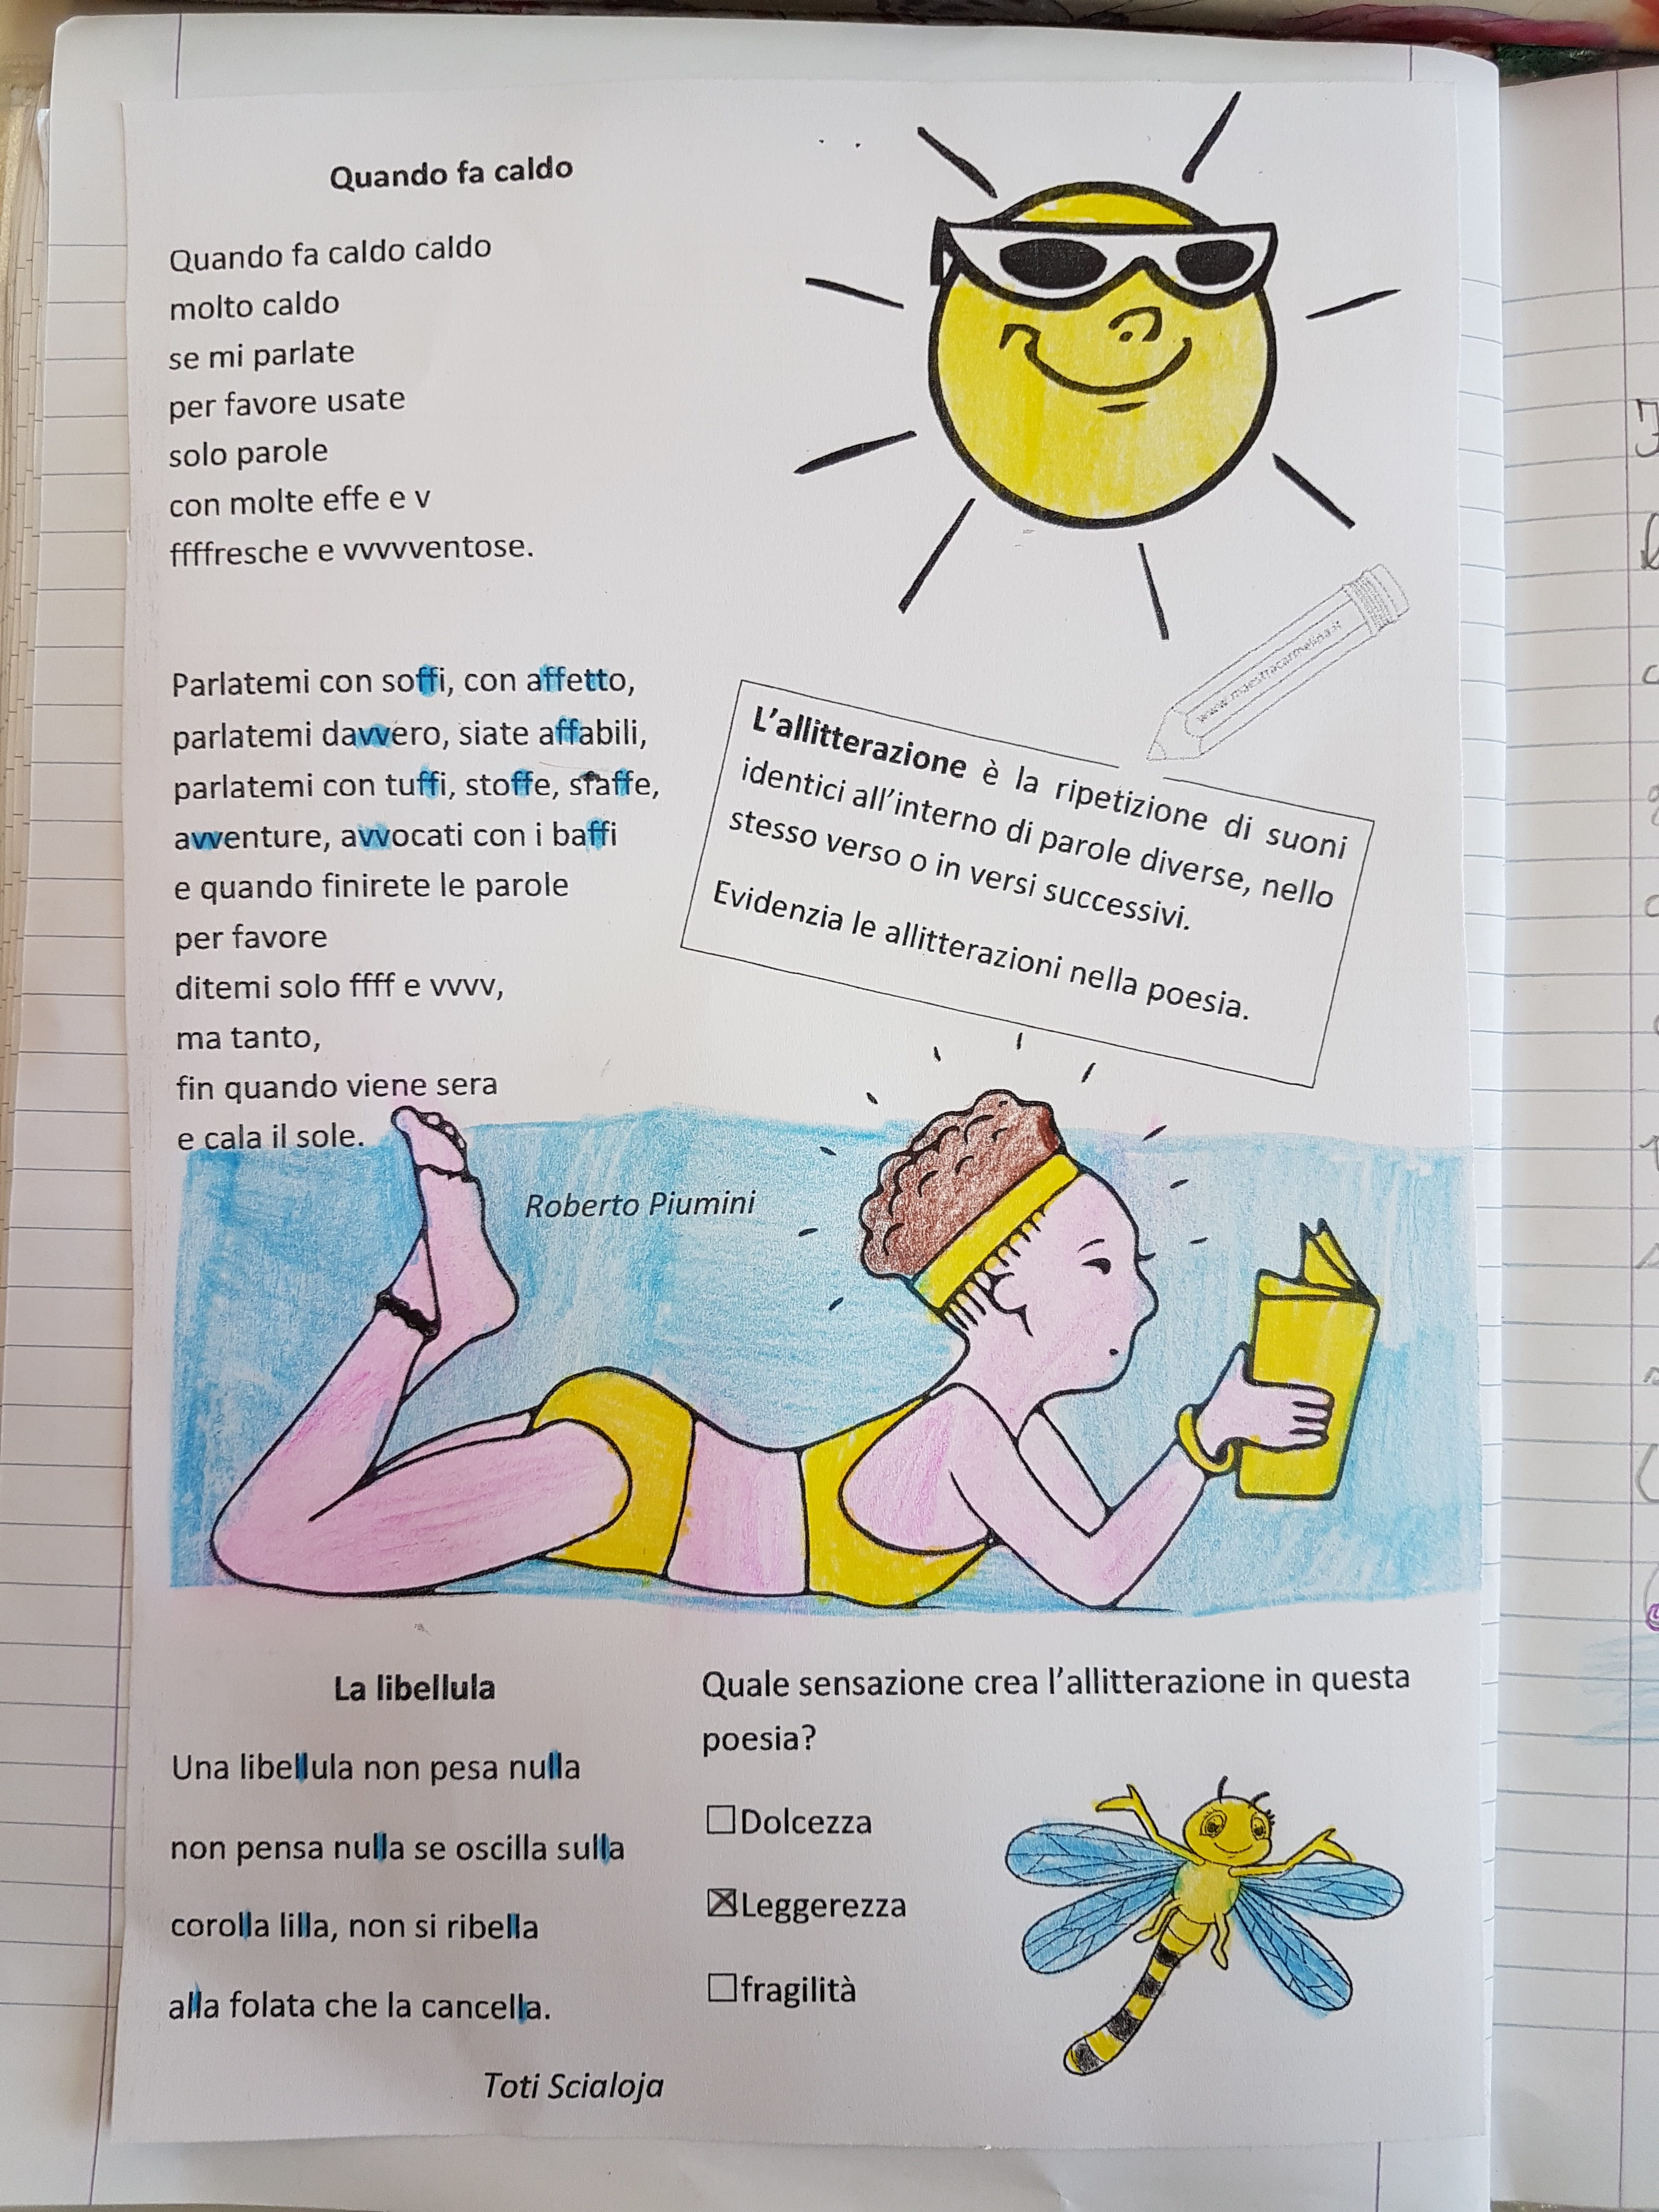 Quando fa caldo
Quando fa caldo caldo
molto caldo
se mi parlate
per favore usate
solo parole
con molte effe e v
ffffresche e vvvvventose.
Parlatemi con soffi, con affetto,
parlatemi davvero, siate affabili,
parlatemi con tuffi, stoffe, staffe,
avventure, avvocati con i baffi
e quando finirete le parole
per favore
ditemi solo ffff e vvvv,
ma tanto,
fin quando viene sera
e cala il sole.
Roberto Piumini
www.maestracarmelina.it
L'allitterazione è la ripetizione di suoni
identici all'interno di parole diverse, nello
stesso verso o in versi successivi.
Evidenzia le allitterazioni nella poesia.
La libellula
Una libellula non pesa nulla
non pensa nulla se oscilla sulla
corolla lilla, non si ribella
alla folata che la cancella.
Toti Scialoja
Quale sensazione crea l'allitterazione in questa
poesia?
☐Dolcezza
☒Leggerezza
☐fragilità